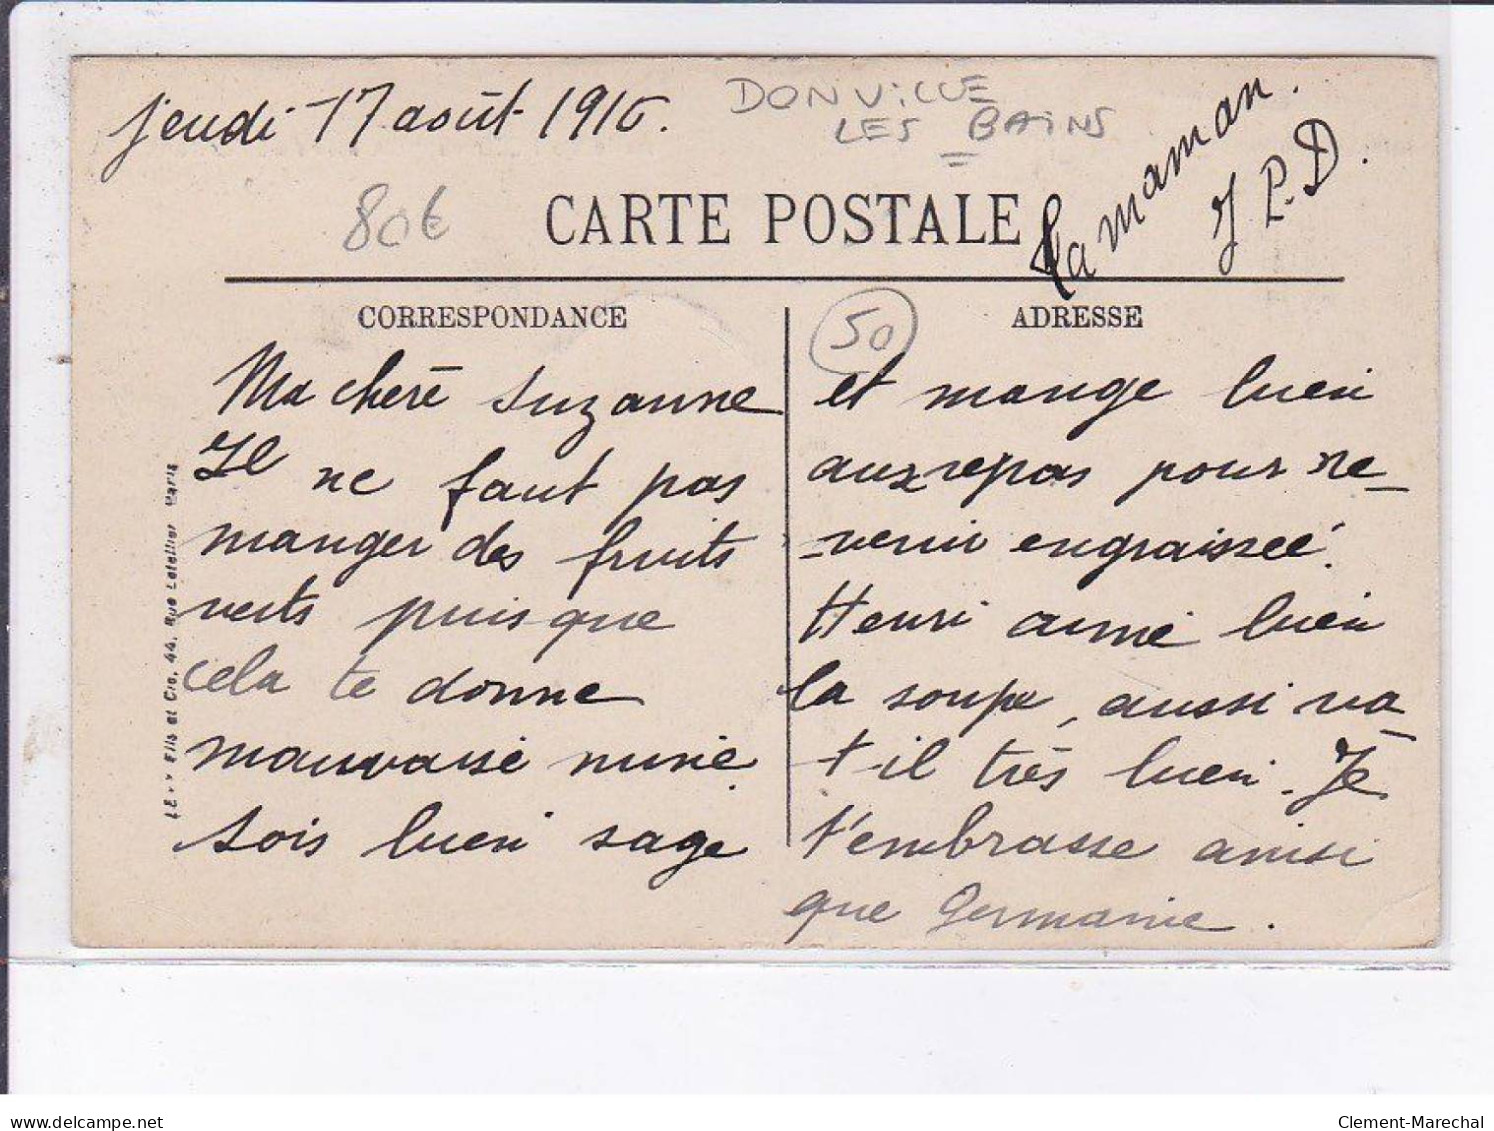 jeudi 17 août 1916.
DONVILLE
LES BAINS
Ta maman.
J P.D.
80€
CARTE POSTALE
CORRESPONDANCE
ADRESSE
50
Ma chère Suzanne
Il ne faut pas
manger des fruits
verts puisque
cela te donne
mauvaise mine.
Sois bien sage
et mange bien
aux repas pour re-
-venir engraissée.
Henri aime bien
la soupe, aussi va
t-il très bien. Je
t'embrasse ainsi
que Germaine.
Fils et Cie, 44, Rue Letellier Paris
delcampe.net
Clement-Marechal